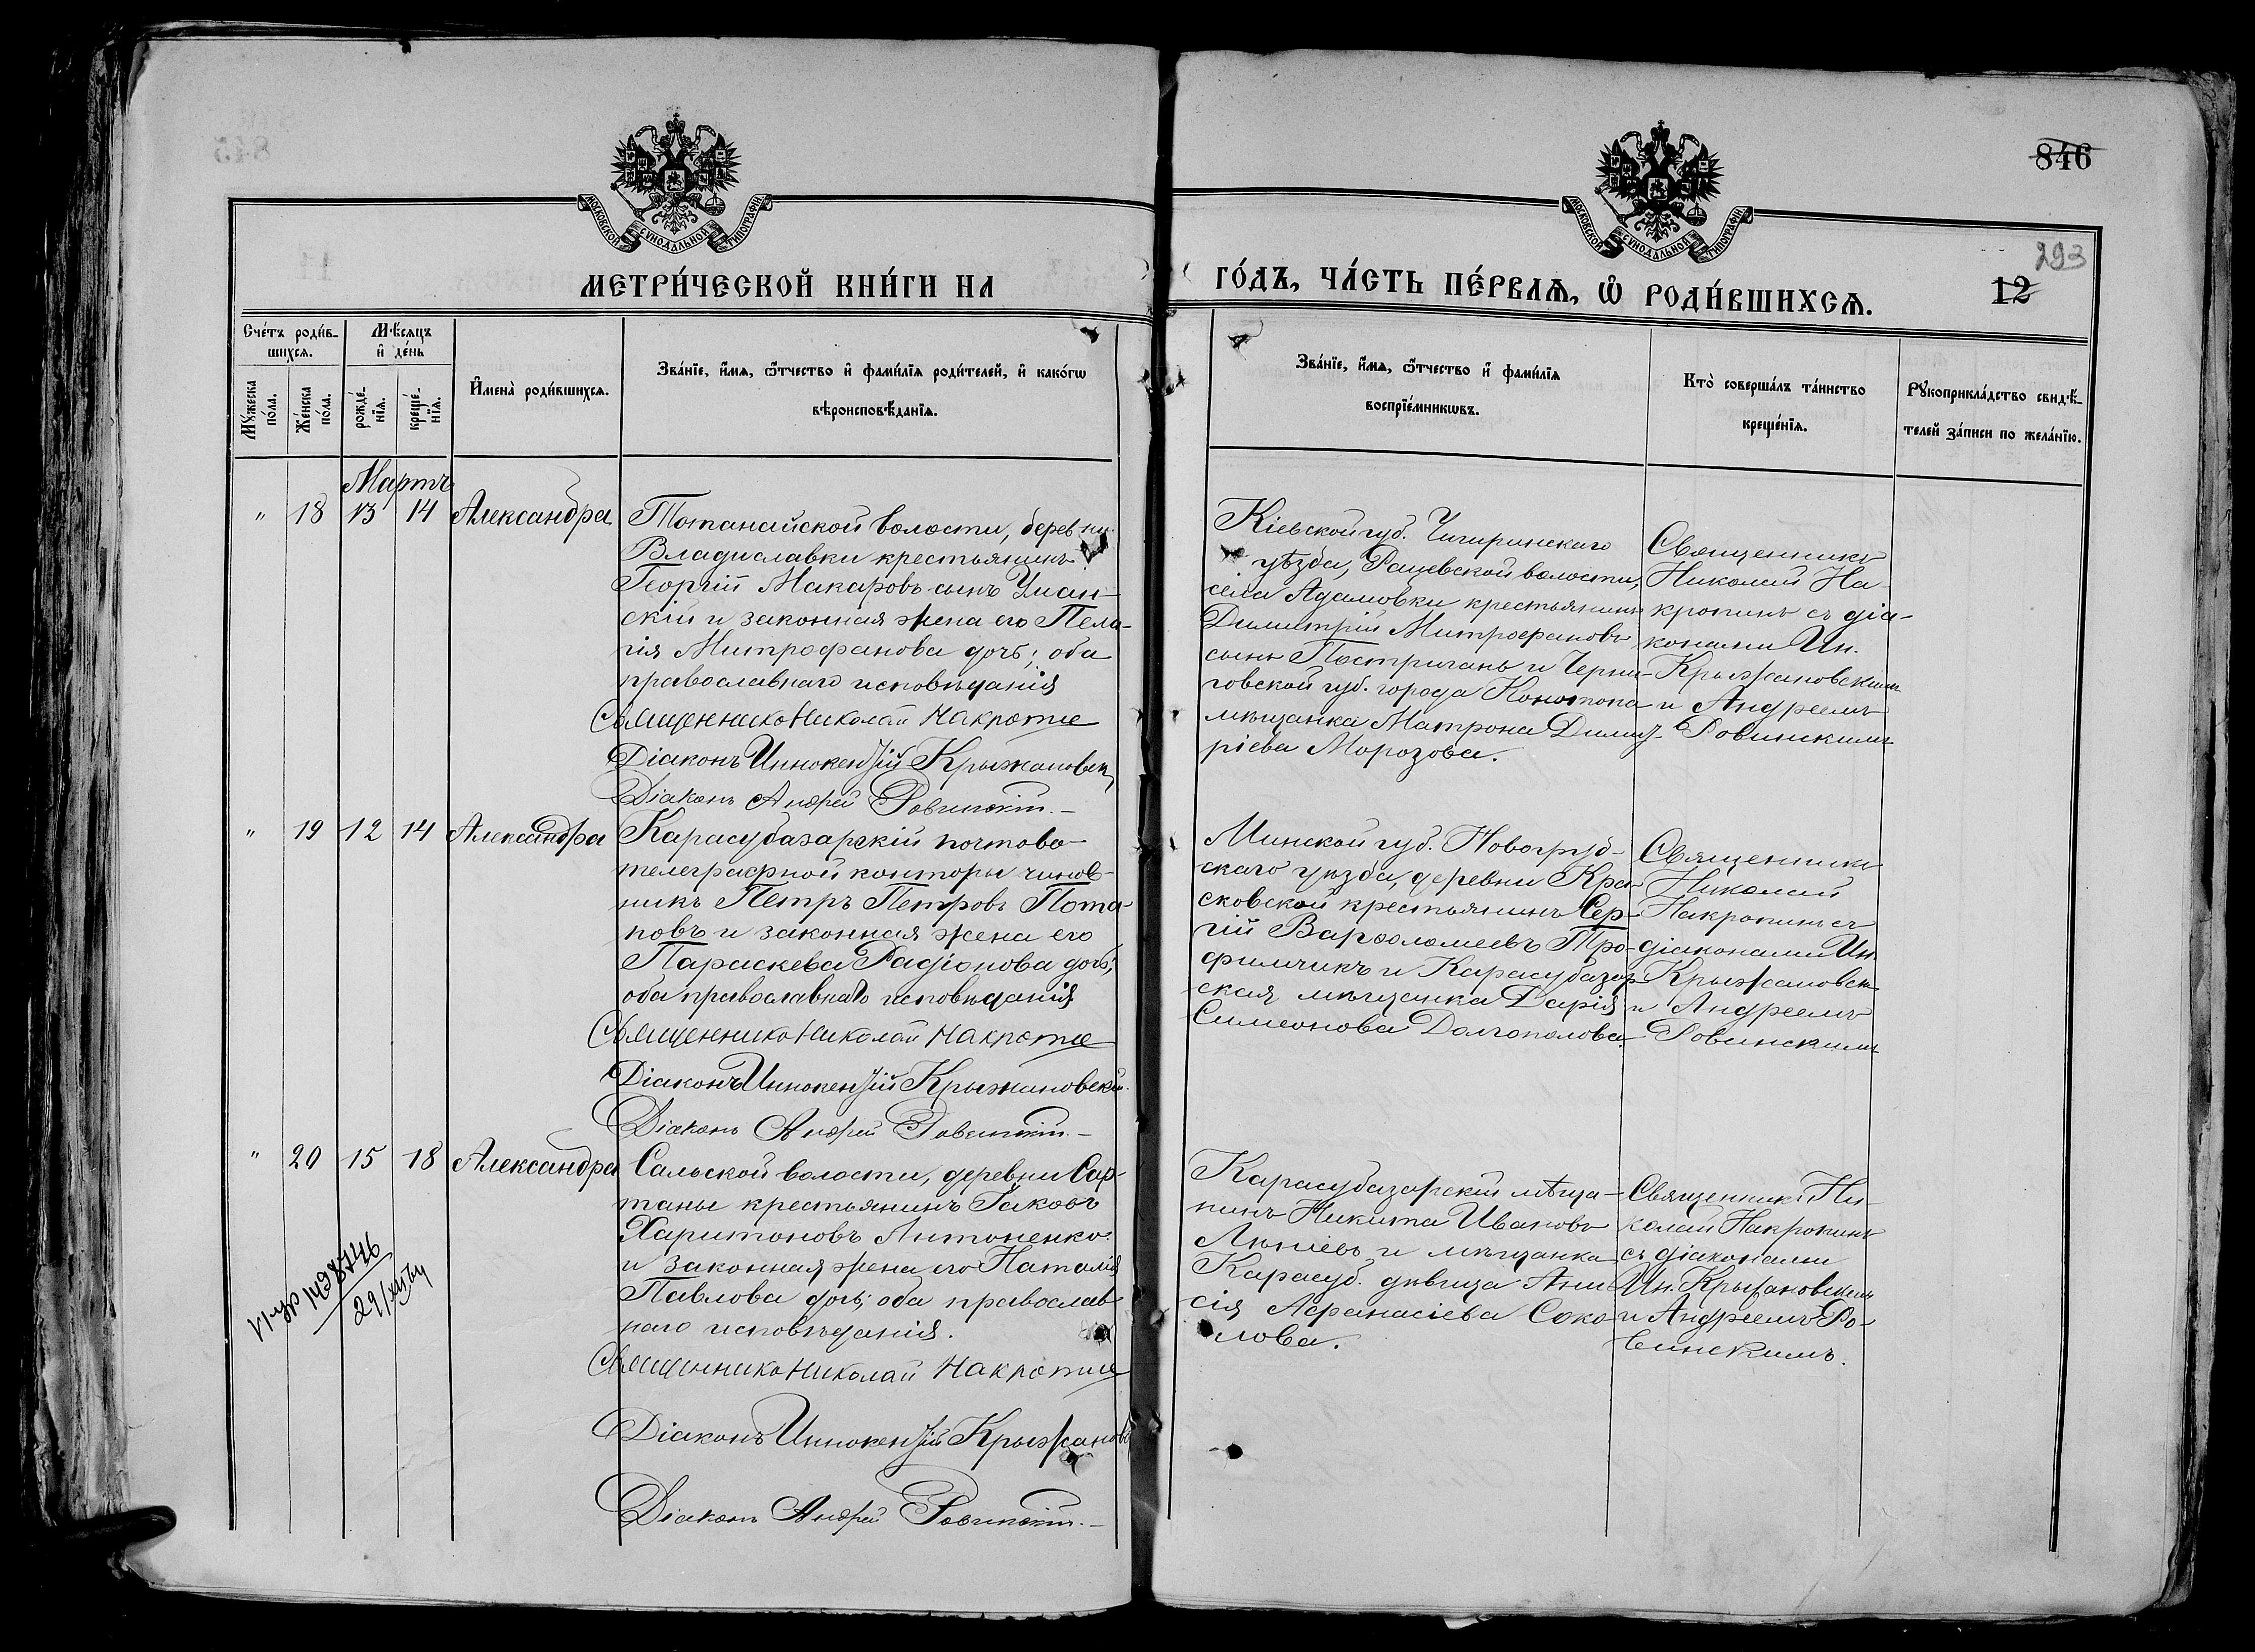 846
293
12
МОСКОВСКОЙ СѴНОДАЛЬНОЙ ТИПОГРАФІИ
МОСКОВСКОЙ СѴНОДАЛЬНОЙ ТИПОГРАФІИ
МЕТРИ́ЧЕСКОЙ КНИ́ГИ НА
ГО́ДЪ, ЧА́СТЬ ПЕ́РВАѦ, Ѽ РОДИ́ВШИХСѦ.
Сче́тъ роди́в-
шихсѧ.
Мѣ́сѧцъ
и҆ де́нь
Мꙋ́жеска
по́ла.
Же́нска
по́ла.
рожде́-
нїѧ.
креще́-
нїѧ.
И҆мена̀ роди́вшихсѧ.
Зва́нїе, и҆́мѧ, ѻ҆́тчество и҆ фами́лїѧ роди́телей, и҆ како́гѡ
вѣроисповѣ́данїѧ.
Зва́нїе, и҆́мѧ, ѻ҆́тчество и҆ фами́лїѧ
воспрїе́мникѡвъ.
Кто̀ соверша́лъ та́инство
креще́нїѧ.
Рꙋкоприкла́дство свидѣ́-
телей за́писи по жела́нїю.
Мартъ
" 18 13 14 Александра
Потанайской волости, деревни
Владиславки крестьянинъ
Георгій Макаровъ сынъ Уман-
скій и законная жена его Пела-
гія Митрофанова дочь; оба
православнаго исповѣданія
Священникъ Николай Накропин
Діаконъ Иннокентій Крыжановск
Діаконъ Андрей Ровинскій.
Кіевской губ. Чигиринскаго
уѣзда, Рацевской волости,
села Адамовки крестьянинъ
Димитрій Митрофановъ
сынъ Постриганъ и Черни-
говской губ. города Конотопа
мѣщанка Матрона Димит-
ріева Морозова.
Священникъ
Николай На-
кропинъ съ діа-
конами Ин.
Крыжановскимъ
и Андреемъ
Ровинскимъ
" 19 12 14 Александра
Карасубазарскій почтово-
телеграфной конторы чинов-
никъ Петръ Петровъ Пота-
повъ и законная жена его
Параскева Радіонова дочь;
оба православнаго исповѣданія
Священникъ Николай Накропин
Діаконъ Иннокентій Крыжановскій
Діаконъ Андрей Ровинскій.
Минской губ. Новогруд-
скаго уѣзда, деревни Кра-
сковской крестьянинъ Сер-
гій Варѳоломеевъ Тро-
фимчикъ и Карасубазар-
ская мѣщанка Дарія
Симеонова Долгополова.
Священникъ
Николай
Накропинъ съ
діаконами Ин
Крыжановск
и Андреемъ
Ровинскимъ
" 20 15 18 Александра
Сальской волости, деревни Сар-
таны крестьянинъ Іаковъ
Харитоновъ Антоненко
и законная жена его Наталія
Павлова дочь; оба православ
наго исповѣданія.
Священникъ Николай Накропин
Діаконъ Иннокентій Крыжановс
Діаконъ Андрей Ровинскій.
Карасубазарскій мѣща-
нинъ Никита Ивановъ
и мѣщанка
Карасуб. дѣвица Ани
сія Афанасіева Соко-
лова.
Священникъ Ни-
колай Накропинъ
съ діаконами
Ин. Крыжановскимъ
и Андреемъ Ро-
винскимъ.